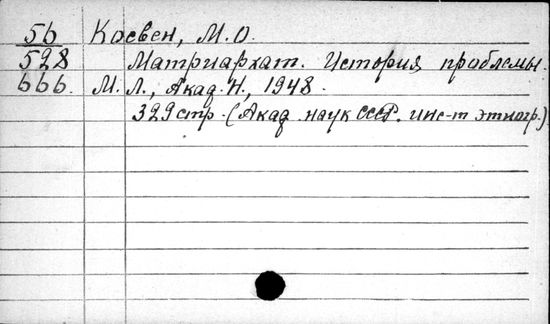 56 Косвен, М.О.
528 Матриархат. История проблемы.
666. М. Л., Акад. Н., 1948.
329 стр. (Акад. наук СССР. инс-т этногр.)